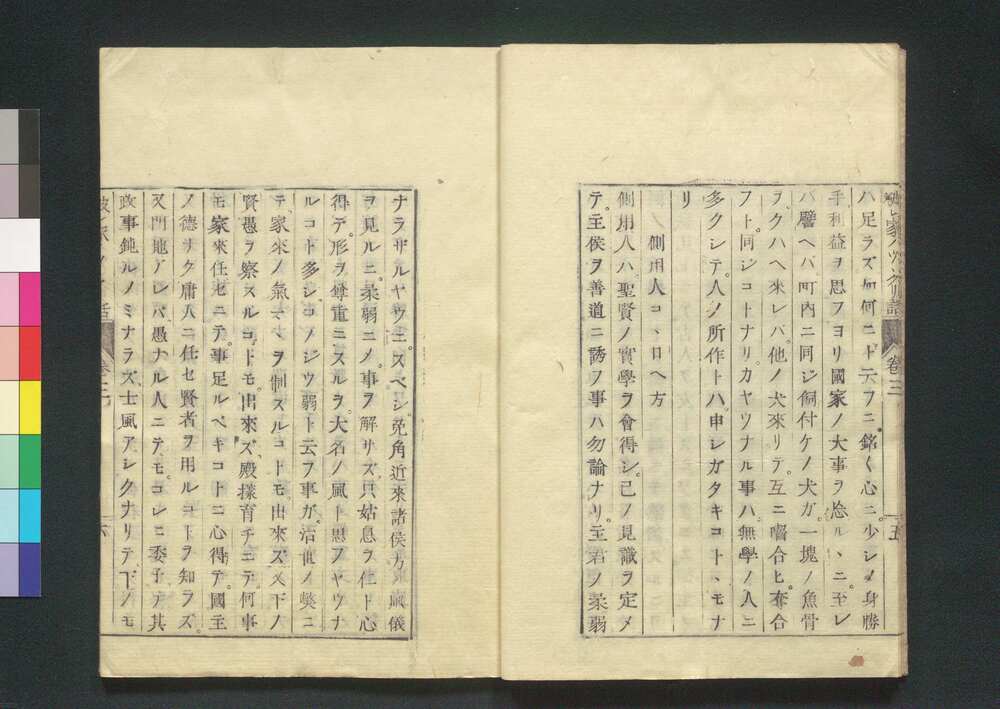 卷三
五
ハ足ラズ如何ニト云フニ銘〱心ニ少シノ身勝
手利益ヲ思フヨリ國家ノ大事ヲ忘ルヽニ至レ
バ譬ヘバ町内ニ同ジ飼付ケノ犬ガ一塊ノ魚骨
ヲクハヘ來レバ他ノ犬來リテ互ニ嚙合ヒ奪合
フト同シコトナリカヤウナル事ハ無學ノ人ニ
多クシテ人ノ所作トハ申シガタキコトヽモナ
リ
側用人コヽロヘ方
側用人ハ聖賢ノ實學ヲ會得シ己ノ見識ヲ定メ
テ主侯ヲ善道ニ誘フ事ハ勿論ナリ主君ノ柔弱
ナラザルヤウニスベシ兎角近來諸侯方ノ風儀
ヲ見ルニ柔弱ニノ事ヲ解サズ只姑息ヲ仕ト心
得テ形ヲ尊重ニスルヲ大名ノ風ト思フヤウナ
ルコト多シコノジウ弱ト云フ事ガ治世ノ獘ニ
テ家來ノ氣マヽヲ制スルコトモ由來ズ又下ノ
賢愚ヲ察スルコトモ出來ズ殿樣育チニテ何事
モ家來任セニテ事足ルベキコトニ心得テ國主
ノ德ナク庸人ニ任セ賢者ヲ用ルコトヲ知ラズ
又門地アレバ愚ナル人ニテモコレニ委子テ其
政事鈍ルノミナラズ士風アシクナリテ下ノモ
卷三
六